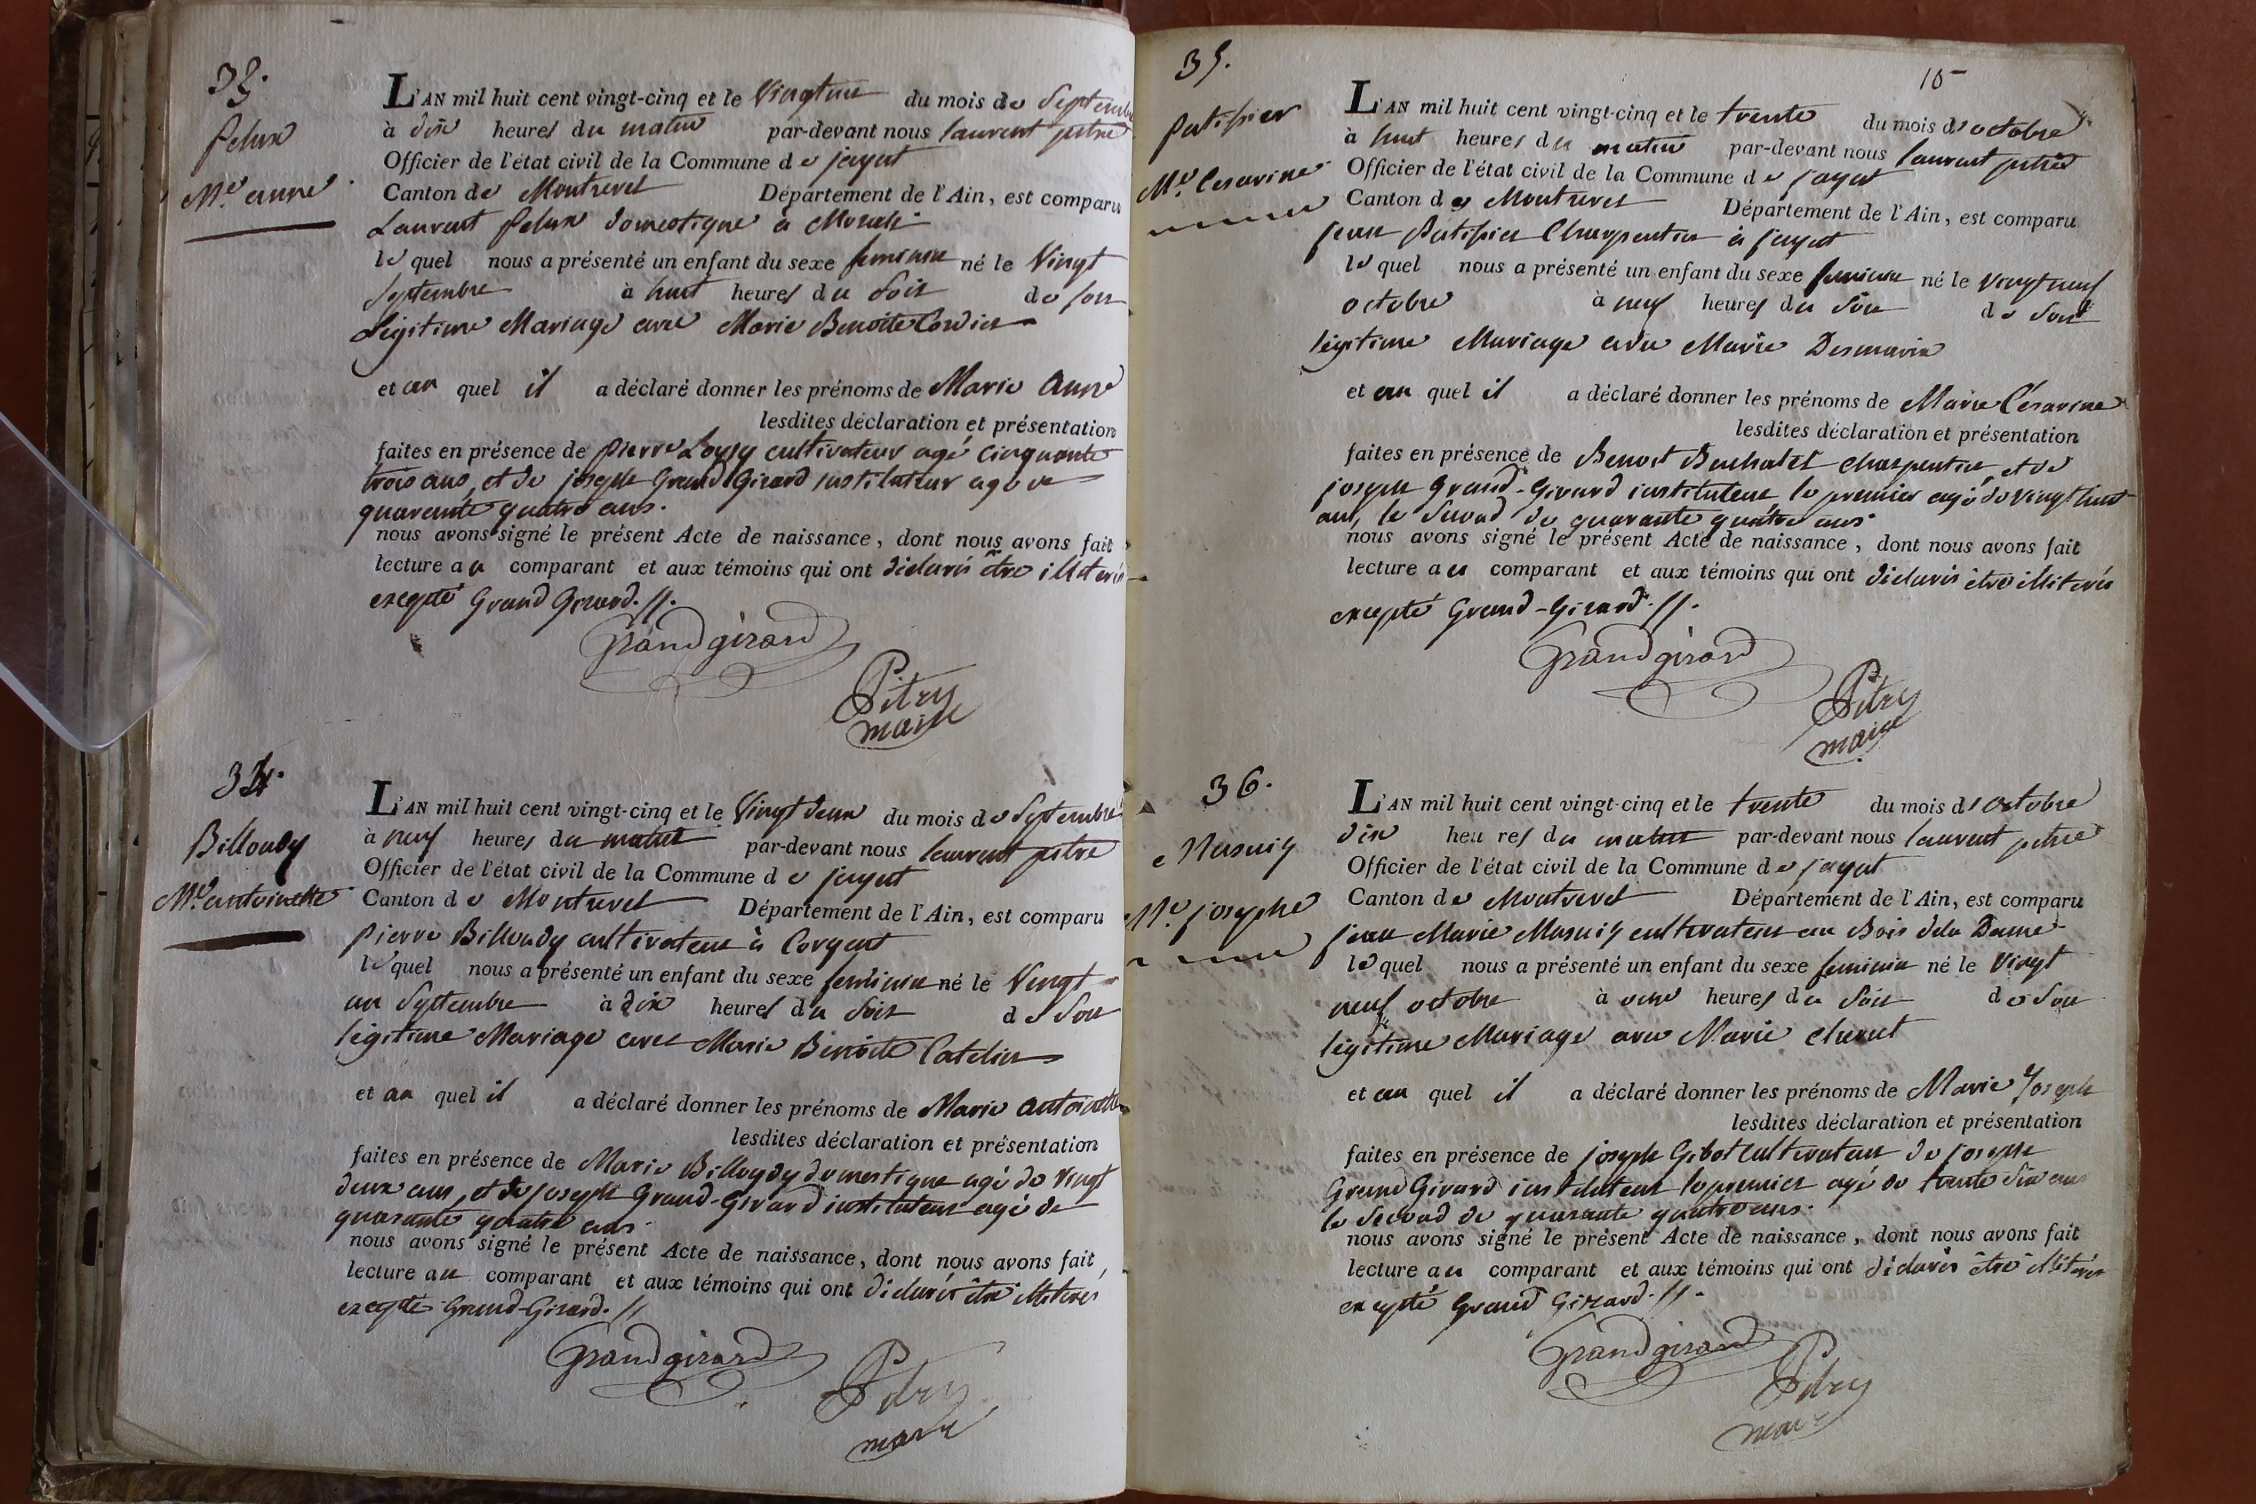 33.
felux
Mie anne
L'AN mil huit cent vingt-cinq et le Vingtun du mois de Septembre
à dix heures du matin par-devant nous laurent pitre
Officier de l'état civil de la Commune de jayat
Canton de Montrevel Département de l'Ain, est comparu
Laurent felux domestique à
le quel nous a présenté un enfant du sexe feminin né le Vingt
Septembre à huit heures du Soir de son
Légitime Mariage avec Marie Benoite Cordier
et au quel il a déclaré donner les prénoms de Marie Anne
lesdites déclaration et présentation
faites en présence de pierre Loysy cultivateur agé cinquante
trois ans, et de joseph Grand Girard instituteur agé de
quarante quatre ans.
nous avons signé le présent Acte de naissance, dont nous avons fait
lecture au comparant et aux témoins qui ont déclarés être illiterés
excepté Grand Girard. //.
Grandgirard
Pitry
maire
34.
Billoudy
Mie antoinette
L'AN mil huit cent vingt-cinq et le Vingt deux du mois de Septembre
à neuf heures du matin par-devant nous laurent pitre
Officier de l'état civil de la Commune de jayat
Canton de Montrevel Département de l'Ain, est comparu
pierre Billoudy cultivateur à Corgent
le quel nous a présenté un enfant du sexe feminin né le Vingt
un Septembre à dix heures du Soir de Son
légitime Mariage avec Marie Benoite Catelin
et au quel il a déclaré donner les prénoms de Marie antoinette
lesdites déclaration et présentation
faites en présence de Marie Billoudy domestique agé de Vingt
deux ans, et de joseph Grand-Girard instituteur agé de
quarante quatre ans.
nous avons signé le présent Acte de naissance, dont nous avons fait
lecture au comparant et aux témoins qui ont déclarés être illiterés
excepté Grand-Girard. //
Grandgirard
Pitry
maire
35.
15
patissier
Mie Cesarine
L'AN mil huit cent vingt-cinq et le trente du mois d'octobre
à huit heures du matin par-devant nous laurent pitre
Officier de l'état civil de la Commune de jayat
Canton de Montrevel Département de l'Ain, est comparu
jean Patissier Charpentier à jayat
le quel nous a présenté un enfant du sexe feminin né le vingt neuf
octobre à neuf heures du Soir de Son
légitime Mariage avec Marie Desmaris
et au quel il a déclaré donner les prénoms de Marie Césarine
lesdites déclaration et présentation
faites en présence de Benoit Buchalet charpentier et de
joseph Grand-Girard instituteur le premier agé de vingt huit
ans, le Second de quarante quatre ans
nous avons signé le présent Acte de naissance, dont nous avons fait
lecture au comparant et aux témoins qui ont déclarés être illiterés
excepté Grand-Girard. //.
Grandgirard
Pitry
maire
36.
Masuiy
Mie josephe
L'AN mil huit cent vingt-cinq et le trente du mois d'octobre
dix heures du matin par-devant nous laurent pitre
Officier de l'état civil de la Commune de jayat
Canton de Montrevel Département de l'Ain, est comparu
jean Marie Masuiy cultivateur au Bois de la Dame
le quel nous a présenté un enfant du sexe feminin né le Vingt
neuf octobre à onze heures du Soir de Son
légitime Mariage avec Marie chevat
et au quel il a déclaré donner les prénoms de Marie Joseph
lesdites déclaration et présentation
faites en présence de joseph Gibot Cultivateur de joseph
Grand Girard instituteur le premier agé de trente six ans
le Second de quarante quatre ans.
nous avons signé le présent Acte de naissance, dont nous avons fait
lecture au comparant et aux témoins qui ont déclarés être illiterés
excepté Grand Girard. //.
Grandgirard
Pitry
maire